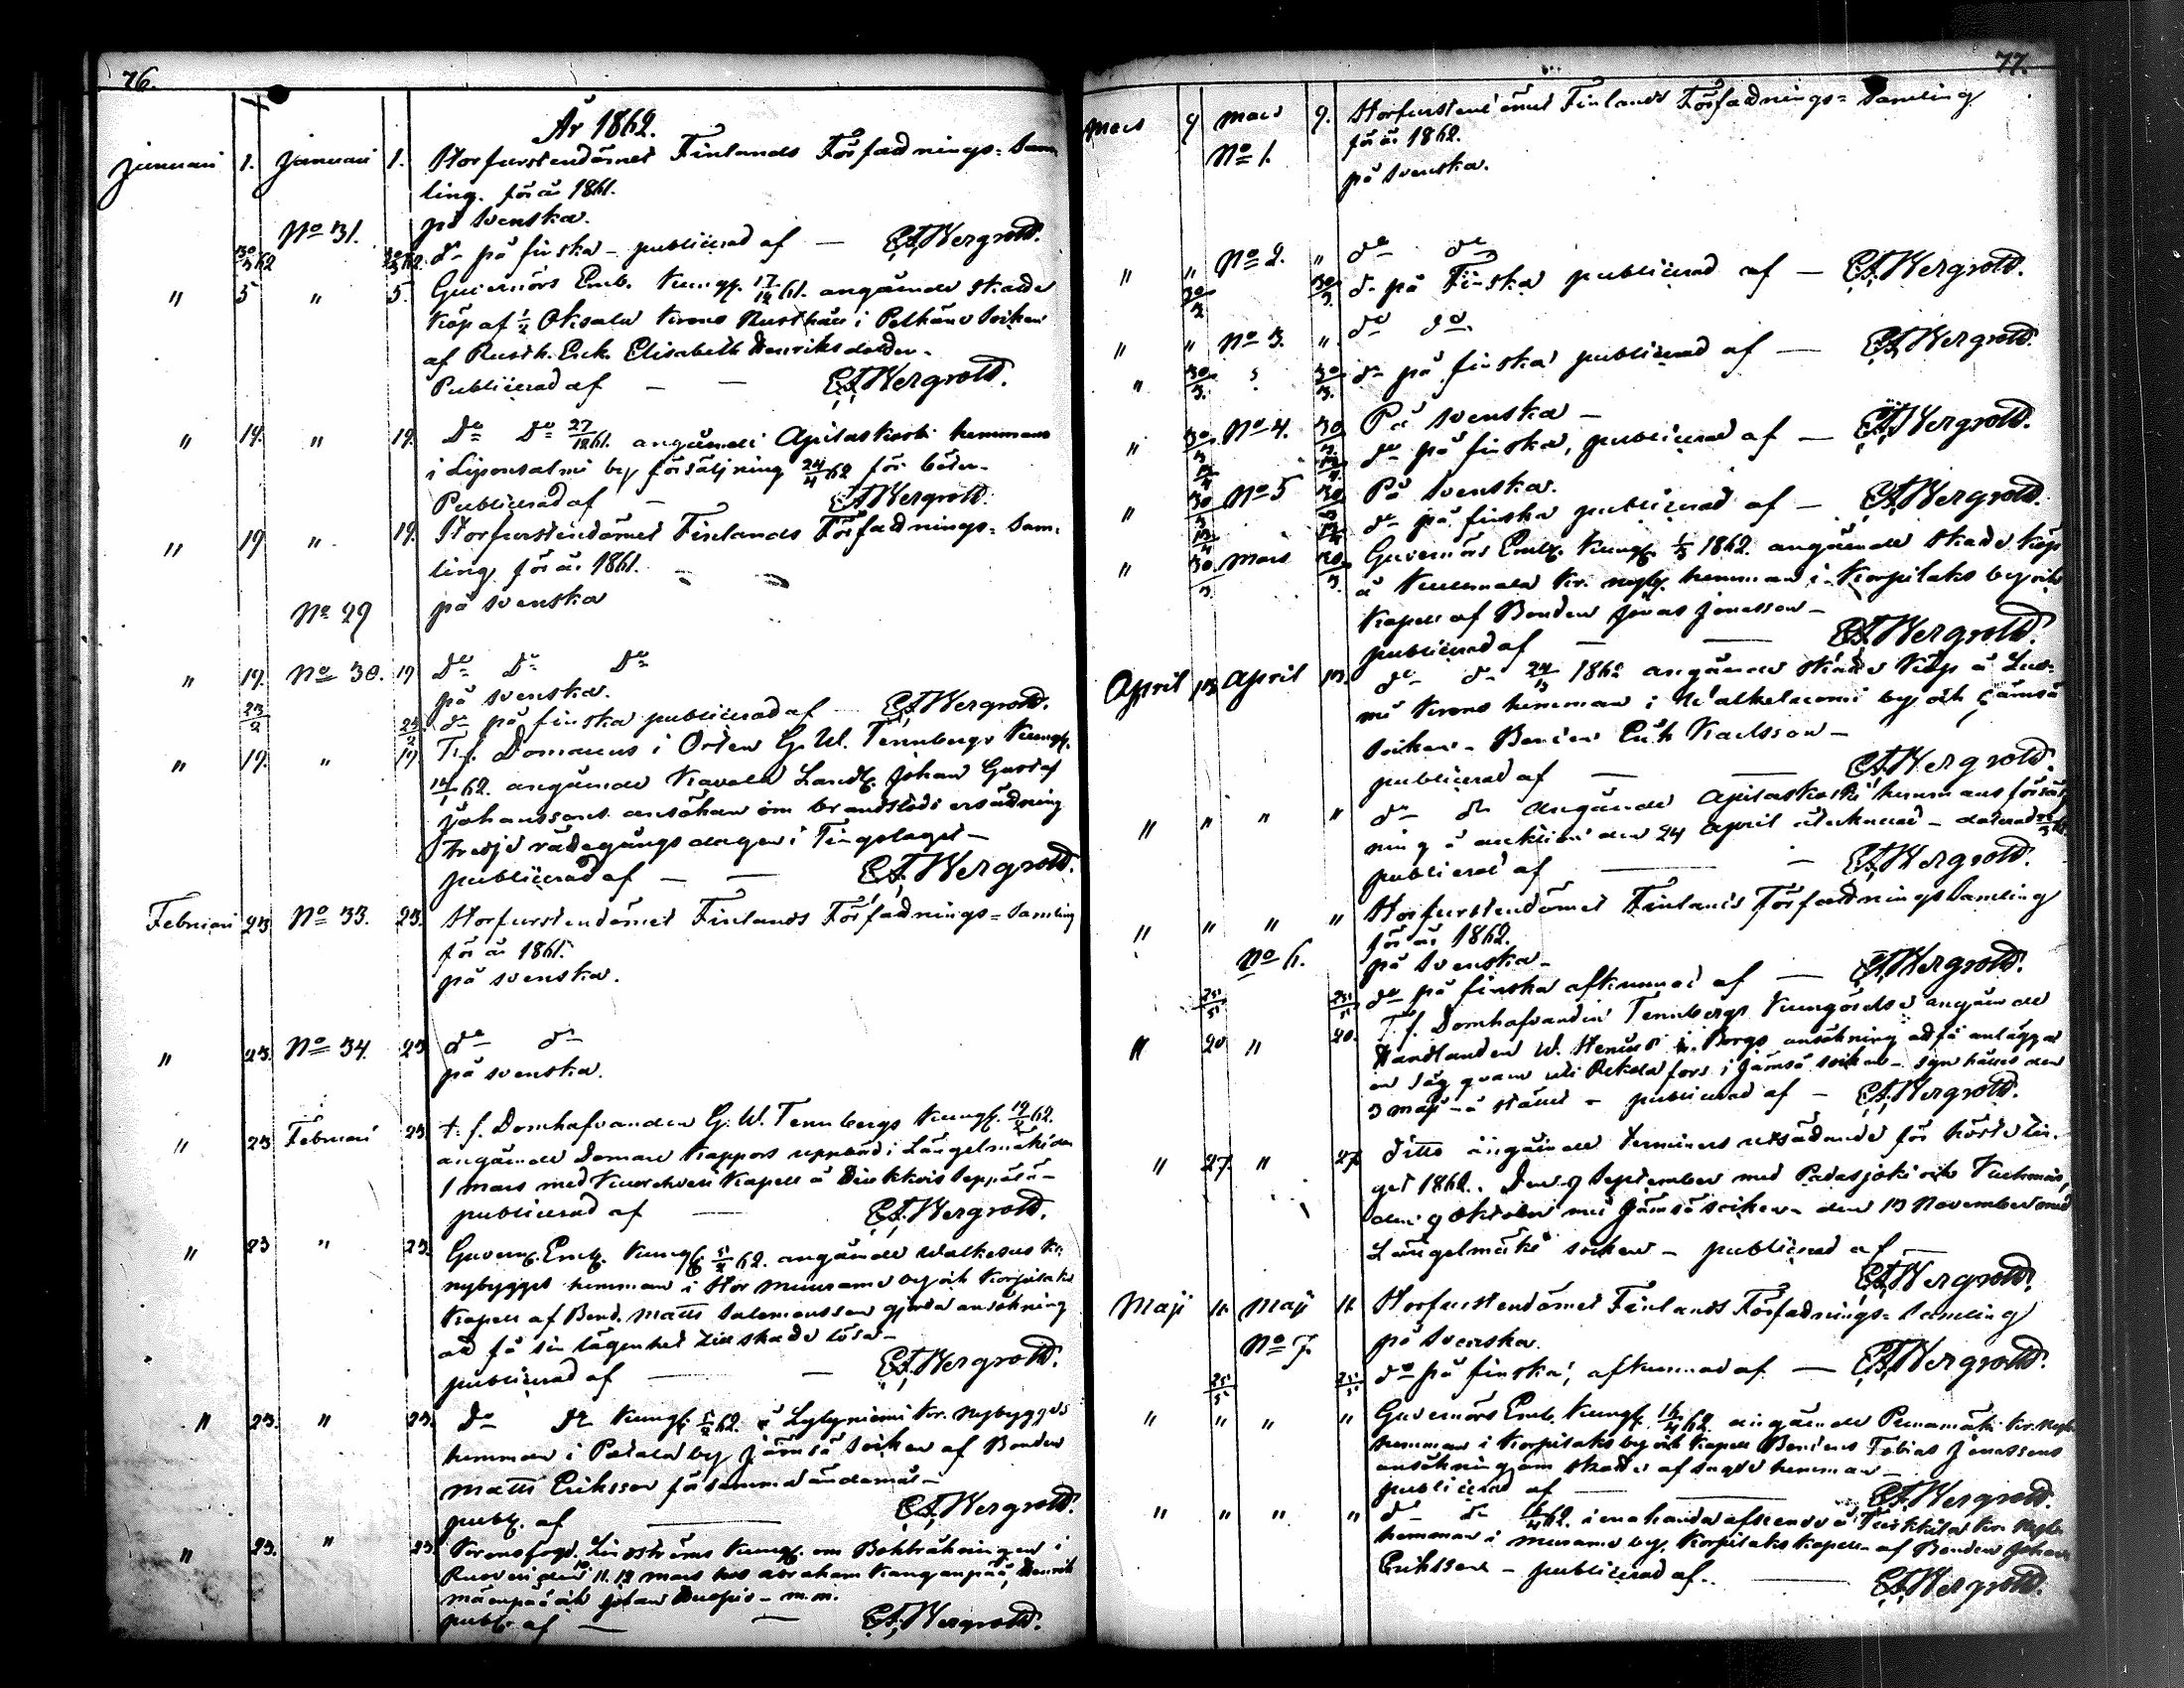 76.
År 1862.
Januari 1. Januari 1. Storfurstendömet Finlands Författnings-Sam
ling. för år 1861.
No 31. på svenska.
30/3 62 30/3 62. do på finska - publicerad af — CAWergrold.
" 5 " 5. Guvernörs Emb. Kungg. 17/12 61. angående skatte
köp af 1/2 Oksala Krono Rusthåll i Pelkäne Socken
af Rusth. Enk. Elisabeth Henriksdotter -
Publicerad af — — CAWergrold.
" 19. " 19. Do Do 27/12 61. angående Apilaskoski hemmans
i Liponsalmi by försäljning 24/4 62 för böter -
Publicerad af — CAWergrold.
" 19 " 19. Storfurstendömet Finlands Författnings-Sam-
ling för år 1861.
No 29 på svenska
" 19. No 30. 19 Do Do Do
på svenska.
23/2 23/2 do på finska publicerad af CAWergrold.
" 19. " 19 T.f. Domarens i Orten G. W. Tennbergs Kungg.
14/1 62. angående Kavala Landb. Johan Gustaf
Johanssons ansökan om brandstods ersättning
tredje rättegångs dagen i Tingslaget -
publicerad af — — CAWergrold.
Februari 23 No 33. 23. Storfurstendömet Finlands Författnings-Samling
för år 1861.
på svenska.
" 23. No 34. 23 do do
på svenska.
" 23 Februari 23. t. f. Domhafvanden G. W. Tennbergs Kungg. 12/2 62.
angående Domare Kappors uppbörd i Längelmäki den
1 mars med Kuorehvesi Kapell å Seppälä -
publicerad af — CAWergrold.
" 23 " 23. Guvern. Emb. Kungg. 5/2 62. angående Walkesus Kr.
nybygges hemman i Stor Muurame by och Korpilaks
Kapell af Bond. Matts Salomonsson gjorda ansökning
att få sin lägenhet till skatte lösa -
publicerad af — — CAWergrold.
" 23. " 23. Do Do Kungg. 5/2 62. å Lylyniemi Kr. Nybygges
hemman i Patala by Jämsä Socken af Bonden
Matts Eriksson för samma ändamål -
publ. af — CAWergrold.
" 23. " 23. Kronofogd. Lindströms Kungg. om Bokbråkningen i
Ruovesi den 11. 12 mars hos Abraham Kanganpää, Henrik
Mäenpää och Johan - m.m.
publ. af — — CAWergrold.
77.
Mars 9 Mars 9. Storfurstendömet Finlands Författnings-Samling
No 1. för år 1862.
på svenska.
" " No 2. " do do
30/3 30/3 do på Finska publicerad af — CAWergrold.
" " No 3. " do do
" 30/3 30/3 do på finska publicerad af — CAWergrold.
" 30/3 No 4. 30/3 På svenska -
13/4 13/4 do på finska, publicerad af — CAWergrold.
" 30/3 No 5 30/3 På svenska.
13/4 13/4 do på finska publicerad af — CAWergrold.
" 30/3 Mars 30/3 Guvernörs Emb. Kungg. 1/3 1862. angående skatte köp
å Kr. nyby. hemman i Korpilaks by och
Kapell af Bonden Jonas Jonasson -
publicerad af — — CAWergrold.
April 13 April 13. do do 24/3 1862 angående skatte köp å
Krono hemman i by och Jämsä
Socken - Bonden Erik Karlsson -
publicerad af — — CAWergrold.
" " " " do do angående Apilaskoski hemmans försälj
ning å auktion den 24 April
publicerad af — — CAWergrold.
" " " " Storfurstendömet Finlands Författnings Samling
för år 1862.
No 6. på svenska -
25/5 25/5 do på finska afkunnad af — CAWergrold.
" 20 " 20. T. f. Domhafvanden Tennbergs Kungörelse angående
Handlanden W. i Borgå ansökning att få anlägga
en såg qvarn vid fors i Jämsä socken - syn hålles den
3 maji å stället - publicerad af — CAWergrold.
" 27 " 27. Ditto angående terminers utsättande för höste tin-
get 1862. Den 9 September med Padasjoki och Kuhmois,
den 9 Oktober med Jämsä socken - den 13 November med
Längelmäki socken - publicerad af —
CAWergrold.
Maji 11. Maji 11. Storfurstendömet Finlands Författnings-Samling
No 7. på svenska.
25/5 25/5 do på finska, afkunnad af — CAWergrold.
" " " " Guvernörs Emb. Kungg. 16/4 62. angående Punamäki Kr. Nyb.
hemman i Korpilaks by och Kapell Bondens Tobias Jonassons
ansökning om skatte af sagde hemman -
publicerad af — — CAWergrold.
" " " " do do 62. i enahanda afseende å Kr. Nyb.
hemman i Murame by, Korpilaks Kapell - af Bonden Johan
Eriksson - publicerad af — CAWergrold.